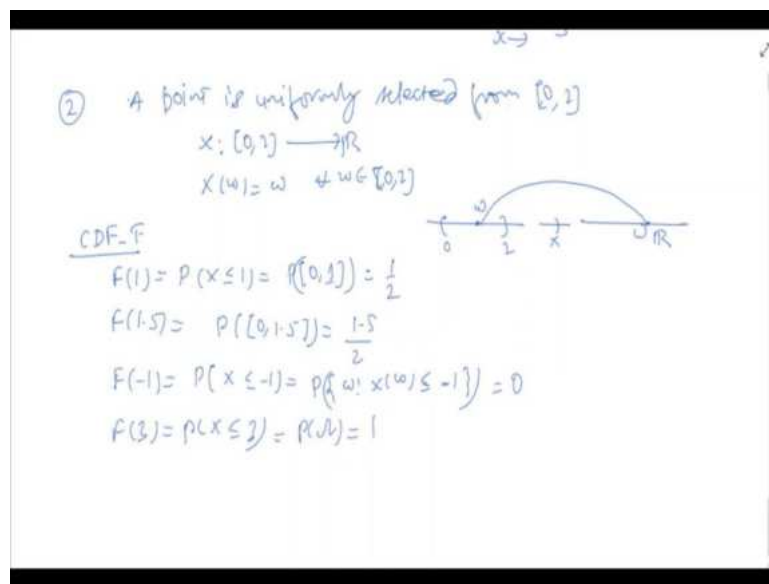 x→
② A point is uniformly selected from [0,2]
X: [0,2] ⟶ ℝ
X(ω) = ω ∀ ω ∈ [0,2]
ω
0 2 x ℝ
CDF-F
F(1) = P(X ≤ 1) = P([0,1]) = 1/2
F(1.5) = P([0,1.5]) = 1.5/2
F(-1) = P(X ≤ -1) = P({ω: X(ω) ≤ -1}) = 0
F(3) = P(X ≤ 3) = P(Ω) = 1